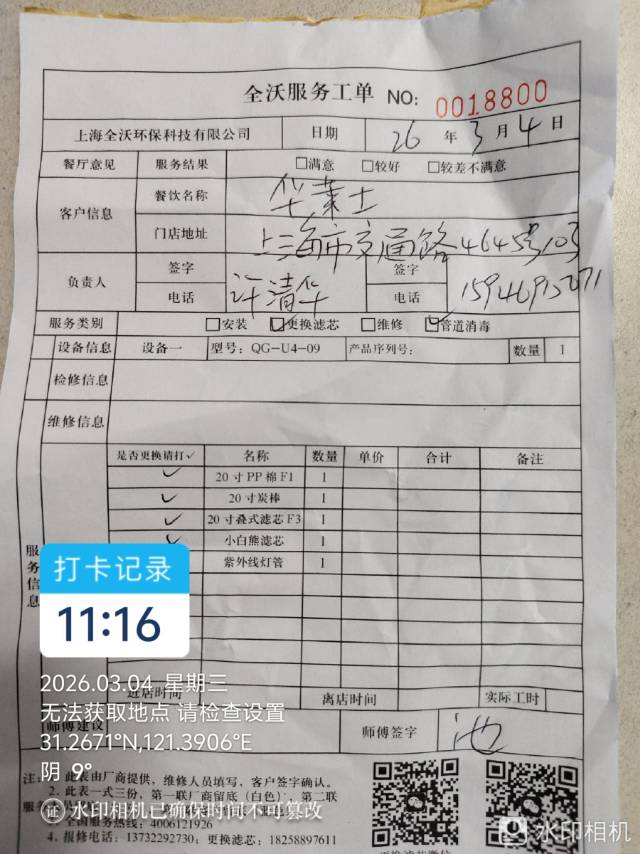 全沃服务工单 NO: 0018800
上海全沃环保科技有限公司 日期 26 年 3 月 4 日
餐厅意见 服务结果 □满意 □较好 □较差不满意
客户信息 餐饮名称 华莱士
门店地址 上海市交通路4645号103
负责人 签字 许清华 签字
电话 电话
服务类别 □安装 □更换滤芯 □维修 □管道消毒
设备信息 设备一 型号: QG-U4-09 产品序列号: 数量 1
检修信息
维修信息
服务信息
是否更换请打✓ 名称 数量 单价 合计 备注
✓ 20寸PP棉F1 1
✓ 20寸炭棒 1
✓ 20寸叠式滤芯F3 1
✓ 小白熊滤芯 1
紫外线灯管 1
打卡记录
11:16
进店时间 离店时间 实际工时
2026.03.04 星期三
无法获取地点 请检查设置
师傅建议 师傅签字 池
31.2671°N,121.3906°E
阴 9°
注: 1. 此表由厂商提供，维修人员填写，客户签字确认。
2. 此表一式三份，第一联厂商留底（白色），第二联
水印相机已确保时间不可篡改
全国服务热线: 4006121926
4. 报修电话: 13732292730; 更换滤芯: 18258897611
水印相机